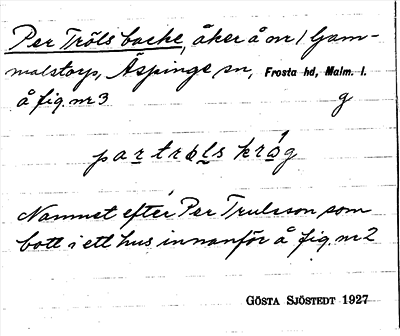 Per Tröls backe, åker å nr 1 Gam-
malstorp, Äspinge sn, Frosta hd, Malm. l.
å fig. nr 3 g
Namnet efter Per Trulsson som
bott i ett hus innanför å fig. nr 2
GÖSTA SJÖSTEDT 1927